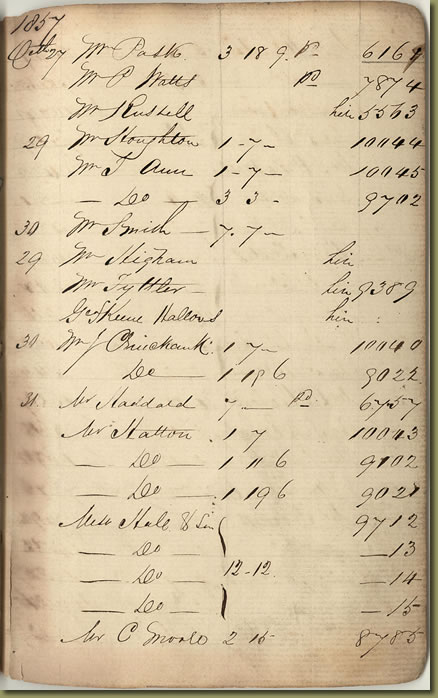 1857
Octr 27 Mr Pask 3 18 9. Pd 6169
Mr P Watts Pd 7874
Mr Russell hire 5563
29 Mr Houghton 1-7- 10044
Mr J Ann 1-7- 10045
— Do — 3 3 - 9702
30 Mr Smith — 7.7-
29 Mr Higham hire
Mr Tyttler hire 9389
Geo Keene Hallows hire
30 Mr J 1 7 - 10040
Do — 1 19 6 9022
31 Mr Haddald 7 — Pd 6757
Mr Hatton 1 7 10043
— Do — 1 11 6 9102
— Do — 1 19 6 9021
Messr Hall & Son 9712
— Do — — 13
— Do — 12-12. — 14
— Do — — 15
Mr C 2 15 8785